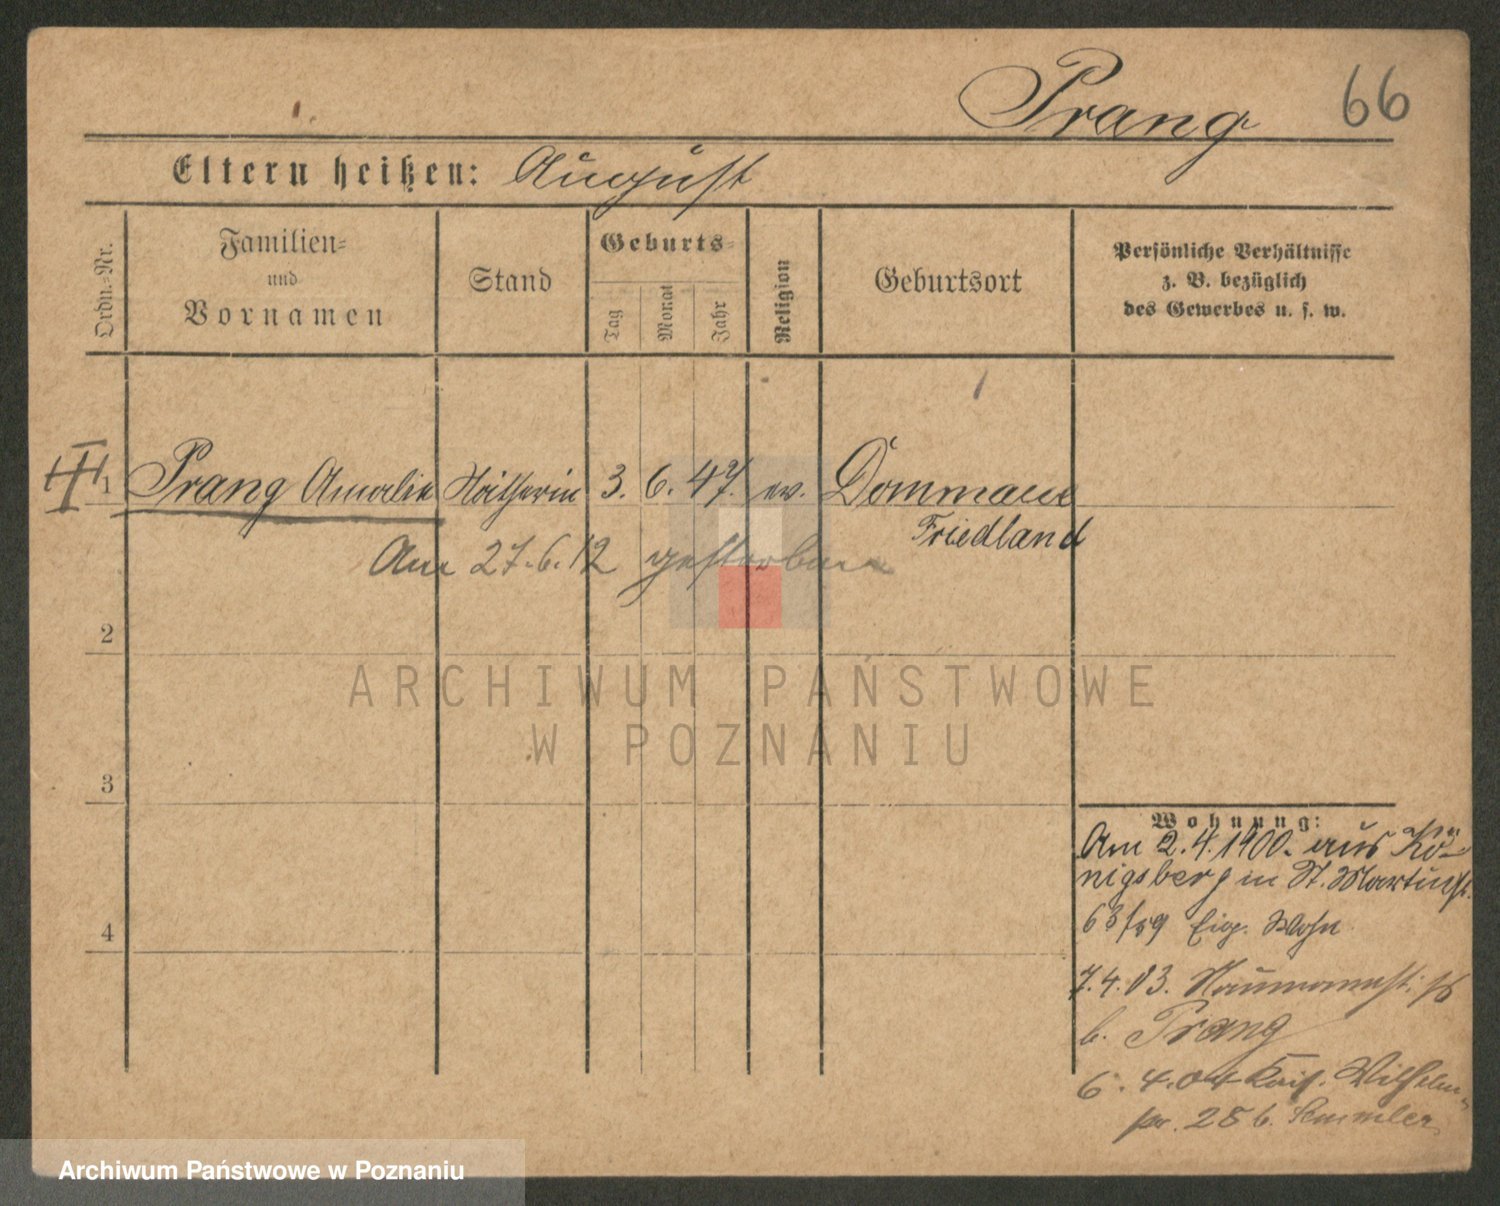 Prang 66
Eltern heißen: August
Ordn.-Nr.
Familien-
und
Vornamen
Stand
Geburts-
Tag
Monat
Jahr
Religion
Geburtsort
Persönliche Verhältnisse
z. B. bezüglich
des Gewerbes u. s. w.
1 Prang Amalie Nätherin 3. 6. 47. ev. Dommaue
Friedland
Am 27.6.12 gestorben
2
ARCHIWUM PAŃSTWOWE
W POZNANIU
3
Wohnung:
Am 2.4.1900. aus Kö-
nigsberg in St. Martinst.
63/59 Eig. Wohn
4
7.4.03. Naumannst.
b. Prang
6. 4.04 Kais. Wilhelm-
28 b. Semmler
Archiwum Państwowe w Poznaniu